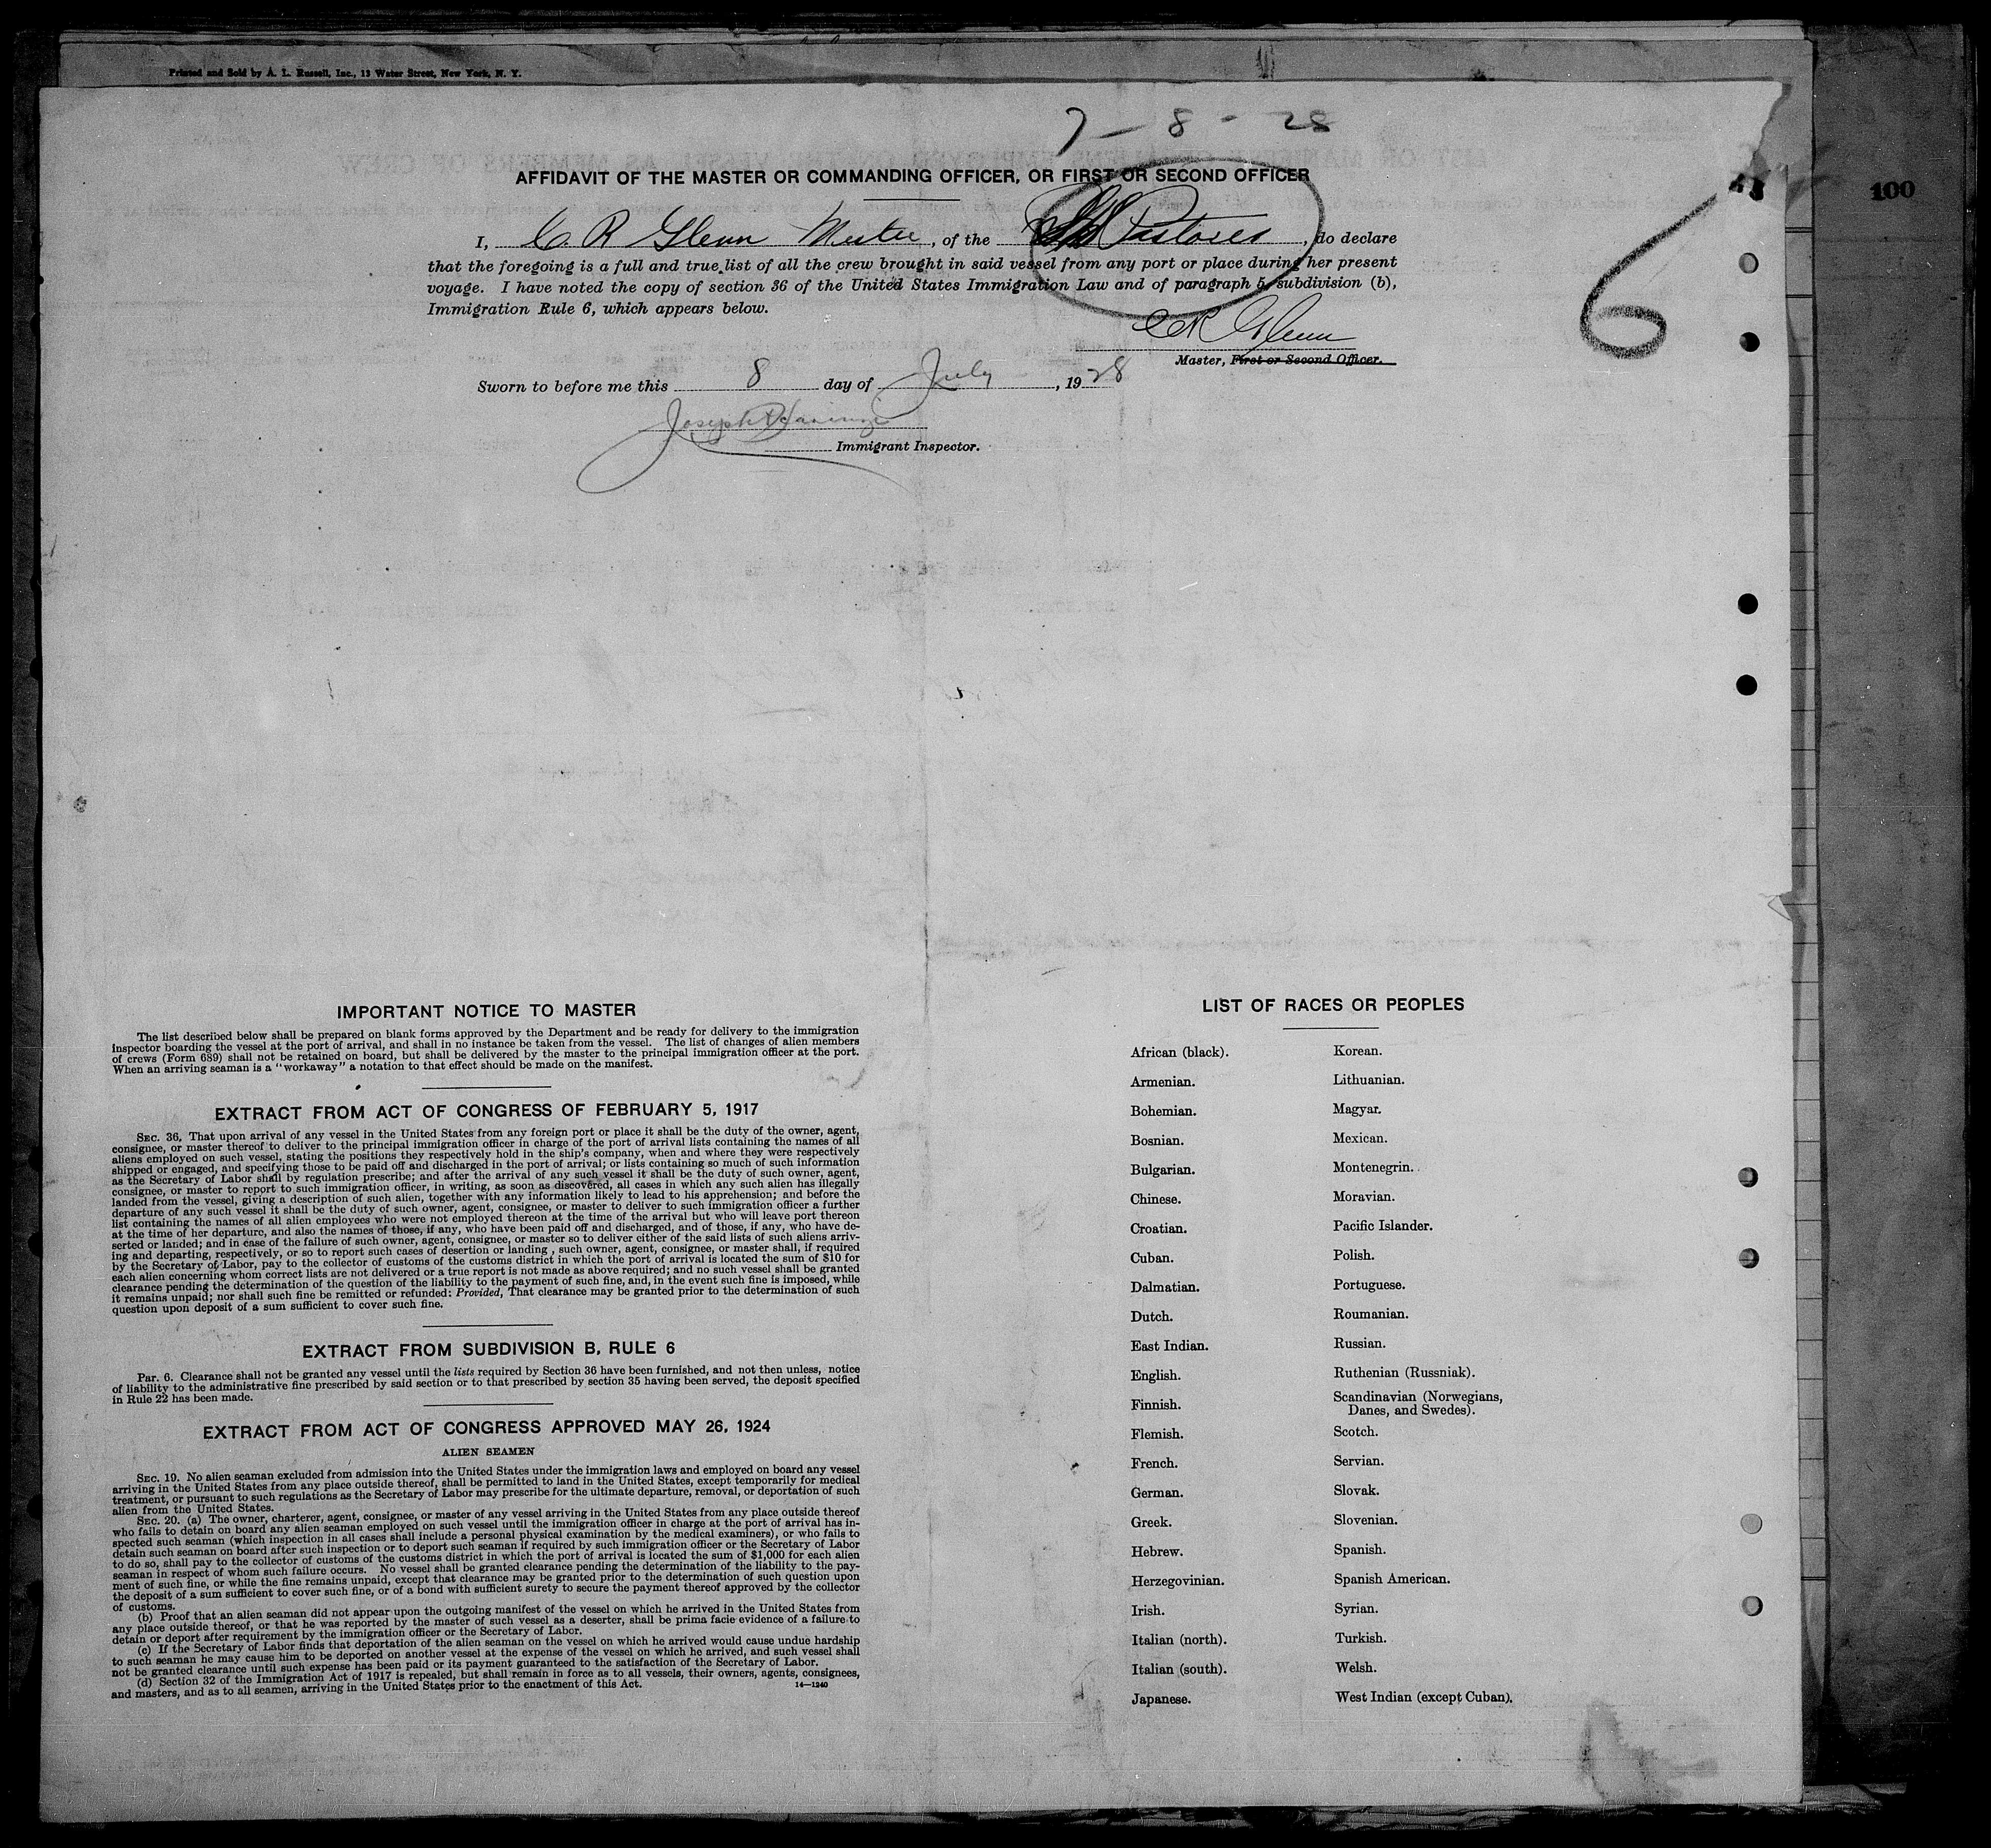 Printed and Sold by A. L. Russell, Inc., 13 Water Street, New York, N. Y.
7 - 8 - 28
AFFIDAVIT OF THE MASTER OR COMMANDING OFFICER, OR FIRST OR SECOND OFFICER
100
I, C. R Glenn Master, of the SS Pastores, do declare
that the foregoing is a full and true list of all the crew brought in said vessel from any port or place during her present
voyage. I have noted the copy of section 36 of the United States Immigration Law and of paragraph 5, subdivision (b),
Immigration Rule 6, which appears below.
6
CR Glenn
Master, First or Second Officer.
Sworn to before me this 8 day of July, 1928
Joseph
Immigrant Inspector.
IMPORTANT NOTICE TO MASTER
The list described below shall be prepared on blank forms approved by the Department and be ready for delivery to the immigration
inspector boarding the vessel at the port of arrival, and shall in no instance be taken from the vessel. The list of changes of alien members
of crews (Form 689) shall not be retained on board, but shall be delivered by the master to the principal immigration officer at the port.
When an arriving seaman is a "workaway" a notation to that effect should be made on the manifest.
EXTRACT FROM ACT OF CONGRESS OF FEBRUARY 5, 1917
SEC. 36, That upon arrival of any vessel in the United States from any foreign port or place it shall be the duty of the owner, agent,
consignee, or master thereof to deliver to the principal immigration officer in charge of the port of arrival lists containing the names of all
aliens employed on such vessel, stating the positions they respectively hold in the ship's company, when and where they were respectively
shipped or engaged, and specifying those to be paid off and discharged in the port of arrival; or lists containing so much of such information
as the Secretary of Labor shall by regulation prescribe; and after the arrival of any such vessel it shall be the duty of such owner, agent,
consignee, or master to report to such immigration officer, in writing, as soon as discovered, all cases in which any such alien has illegally
landed from the vessel, giving a description of such alien, together with any information likely to lead to his apprehension; and before the
departure of any such vessel it shall be the duty of such owner, agent, consignee, or master to deliver to such immigration officer a further
list containing the names of all alien employees who were not employed thereon at the time of the arrival but who will leave port thereon
at the time of her departure, and also the names of those, if any, who have been paid off and discharged, and of those, if any, who have de-
serted or landed; and in case of the failure of such owner, agent, consignee, or master so to deliver either of the said lists of such aliens arriv-
ing and departing, respectively, or so to report such cases of desertion or landing , such owner, agent, consignee, or master shall, if required
by the Secretary of Labor, pay to the collector of customs of the customs district in which the port of arrival is located the sum of $10 for
each alien concerning whom correct lists are not delivered or a true report is not made as above required; and no such vessel shall be granted
clearance pending the determination of the question of the liability to the payment of such fine, and, in the event such fine is imposed, while
it remains unpaid; nor shall such fine be remitted or refunded: Provided, That clearance may be granted prior to the determination of such
question upon deposit of a sum sufficient to cover such fine.
EXTRACT FROM SUBDIVISION B, RULE 6
Par. 6. Clearance shall not be granted any vessel until the lists required by Section 36 have been furnished, and not then unless, notice
of liability to the administrative fine prescribed by said section or to that prescribed by section 35 having been served, the deposit specified
in Rule 22 has been made.
EXTRACT FROM ACT OF CONGRESS APPROVED MAY 26, 1924
ALIEN SEAMEN
SEC. 19. No alien seaman excluded from admission into the United States under the immigration laws and employed on board any vessel
arriving in the United States from any place outside thereof, shall be permitted to land in the United States, except temporarily for medical
treatment, or pursuant to such regulations as the Secretary of Labor may prescribe for the ultimate departure, removal, or deportation of such
alien from the United States.
SEC. 20. (a) The owner, charterer, agent, consignee, or master of any vessel arriving in the United States from any place outside thereof
who fails to detain on board any alien seaman employed on such vessel until the immigration officer in charge at the port of arrival has in-
spected such seaman (which inspection in all cases shall include a personal physical examination by the medical examiners), or who fails to
detain such seaman on board after such inspection or to deport such seaman if required by such immigration officer or the Secretary of Labor
to do so, shall pay to the collector of customs of the customs district in which the port of arrival is located the sum of $1,000 for each alien
seaman in respect of whom such failure occurs. No vessel shall be granted clearance pending the determination of the liability to the pay-
ment of such fine, or while the fine remains unpaid, except that clearance may be granted prior to the determination of such question upon
the deposit of a sum sufficient to cover such fine, or of a bond with sufficient surety to secure the payment thereof approved by the collector
of customs.
(b) Proof that an alien seaman did not appear upon the outgoing manifest of the vessel on which he arrived in the United States from
any place outside thereof, or that he was reported by the master of such vessel as a deserter, shall be prima facie evidence of a failure to
detain or deport after requirement by the immigration officer or the Secretary of Labor.
(c) If the Secretary of Labor finds that deportation of the alien seaman on the vessel on which he arrived would cause undue hardship
to such seaman he may cause him to be deported on another vessel at the expense of the vessel on which he arrived, and such vessel shall
not be granted clearance until such expense has been paid or its payment guaranteed to the satisfaction of the Secretary of Labor.
(d) Section 32 of the Immigration Act of 1917 is repealed, but shall remain in force as to all vessels, their owners, agents, consignees,
and masters, and as to all seamen, arriving in the United States prior to the enactment of this Act.
14—1240
LIST OF RACES OR PEOPLES
African (black).
Armenian.
Bohemian.
Bosnian.
Bulgarian.
Chinese.
Croatian.
Cuban.
Dalmatian.
Dutch.
East Indian.
English.
Finnish.
Flemish.
French.
German.
Greek.
Hebrew.
Herzegovinian.
Irish.
Italian (north).
Italian (south).
Japanese.
Korean.
Lithuanian.
Magyar.
Mexican.
Montenegrin.
Moravian.
Pacific Islander.
Polish.
Portuguese.
Roumanian.
Russian.
Ruthenian (Russniak).
Scandinavian (Norwegians,
Danes, and Swedes).
Scotch.
Servian.
Slovak.
Slovenian.
Spanish.
Spanish American.
Syrian.
Turkish.
Welsh.
West Indian (except Cuban).